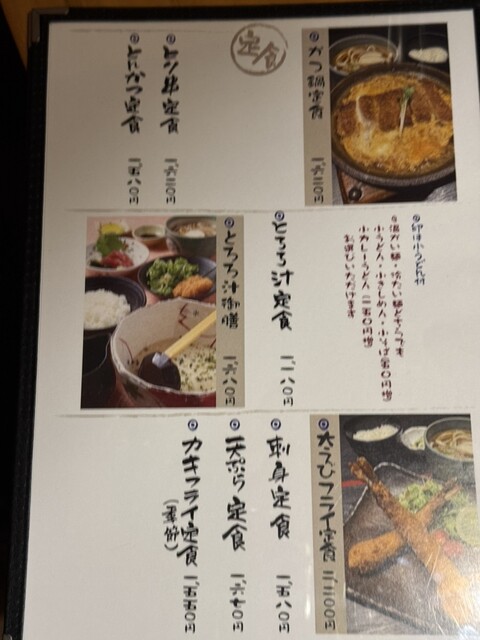 定食
◎かつ鍋定食 一、六二〇円
◎とり丼定食 一、六二〇円
◎とんかつ定食 一、五八〇円
◎印は小うどん付
*温かい麺・冷たい麺どちらでも
小うどん・小きしめん・小そば(五〇円増)
小カレーうどん(二五〇円増)
お選びいただけます
◎とろろ汁定食 一、一八〇円
◎とろろ汁御膳 一、六八〇円
◎大えびフライ定食 二、二〇〇円
◎刺身定食 一、五八〇円
◎天ぷら定食 一、六七〇円
◎カキフライ定食 一、五五〇円
(季節)